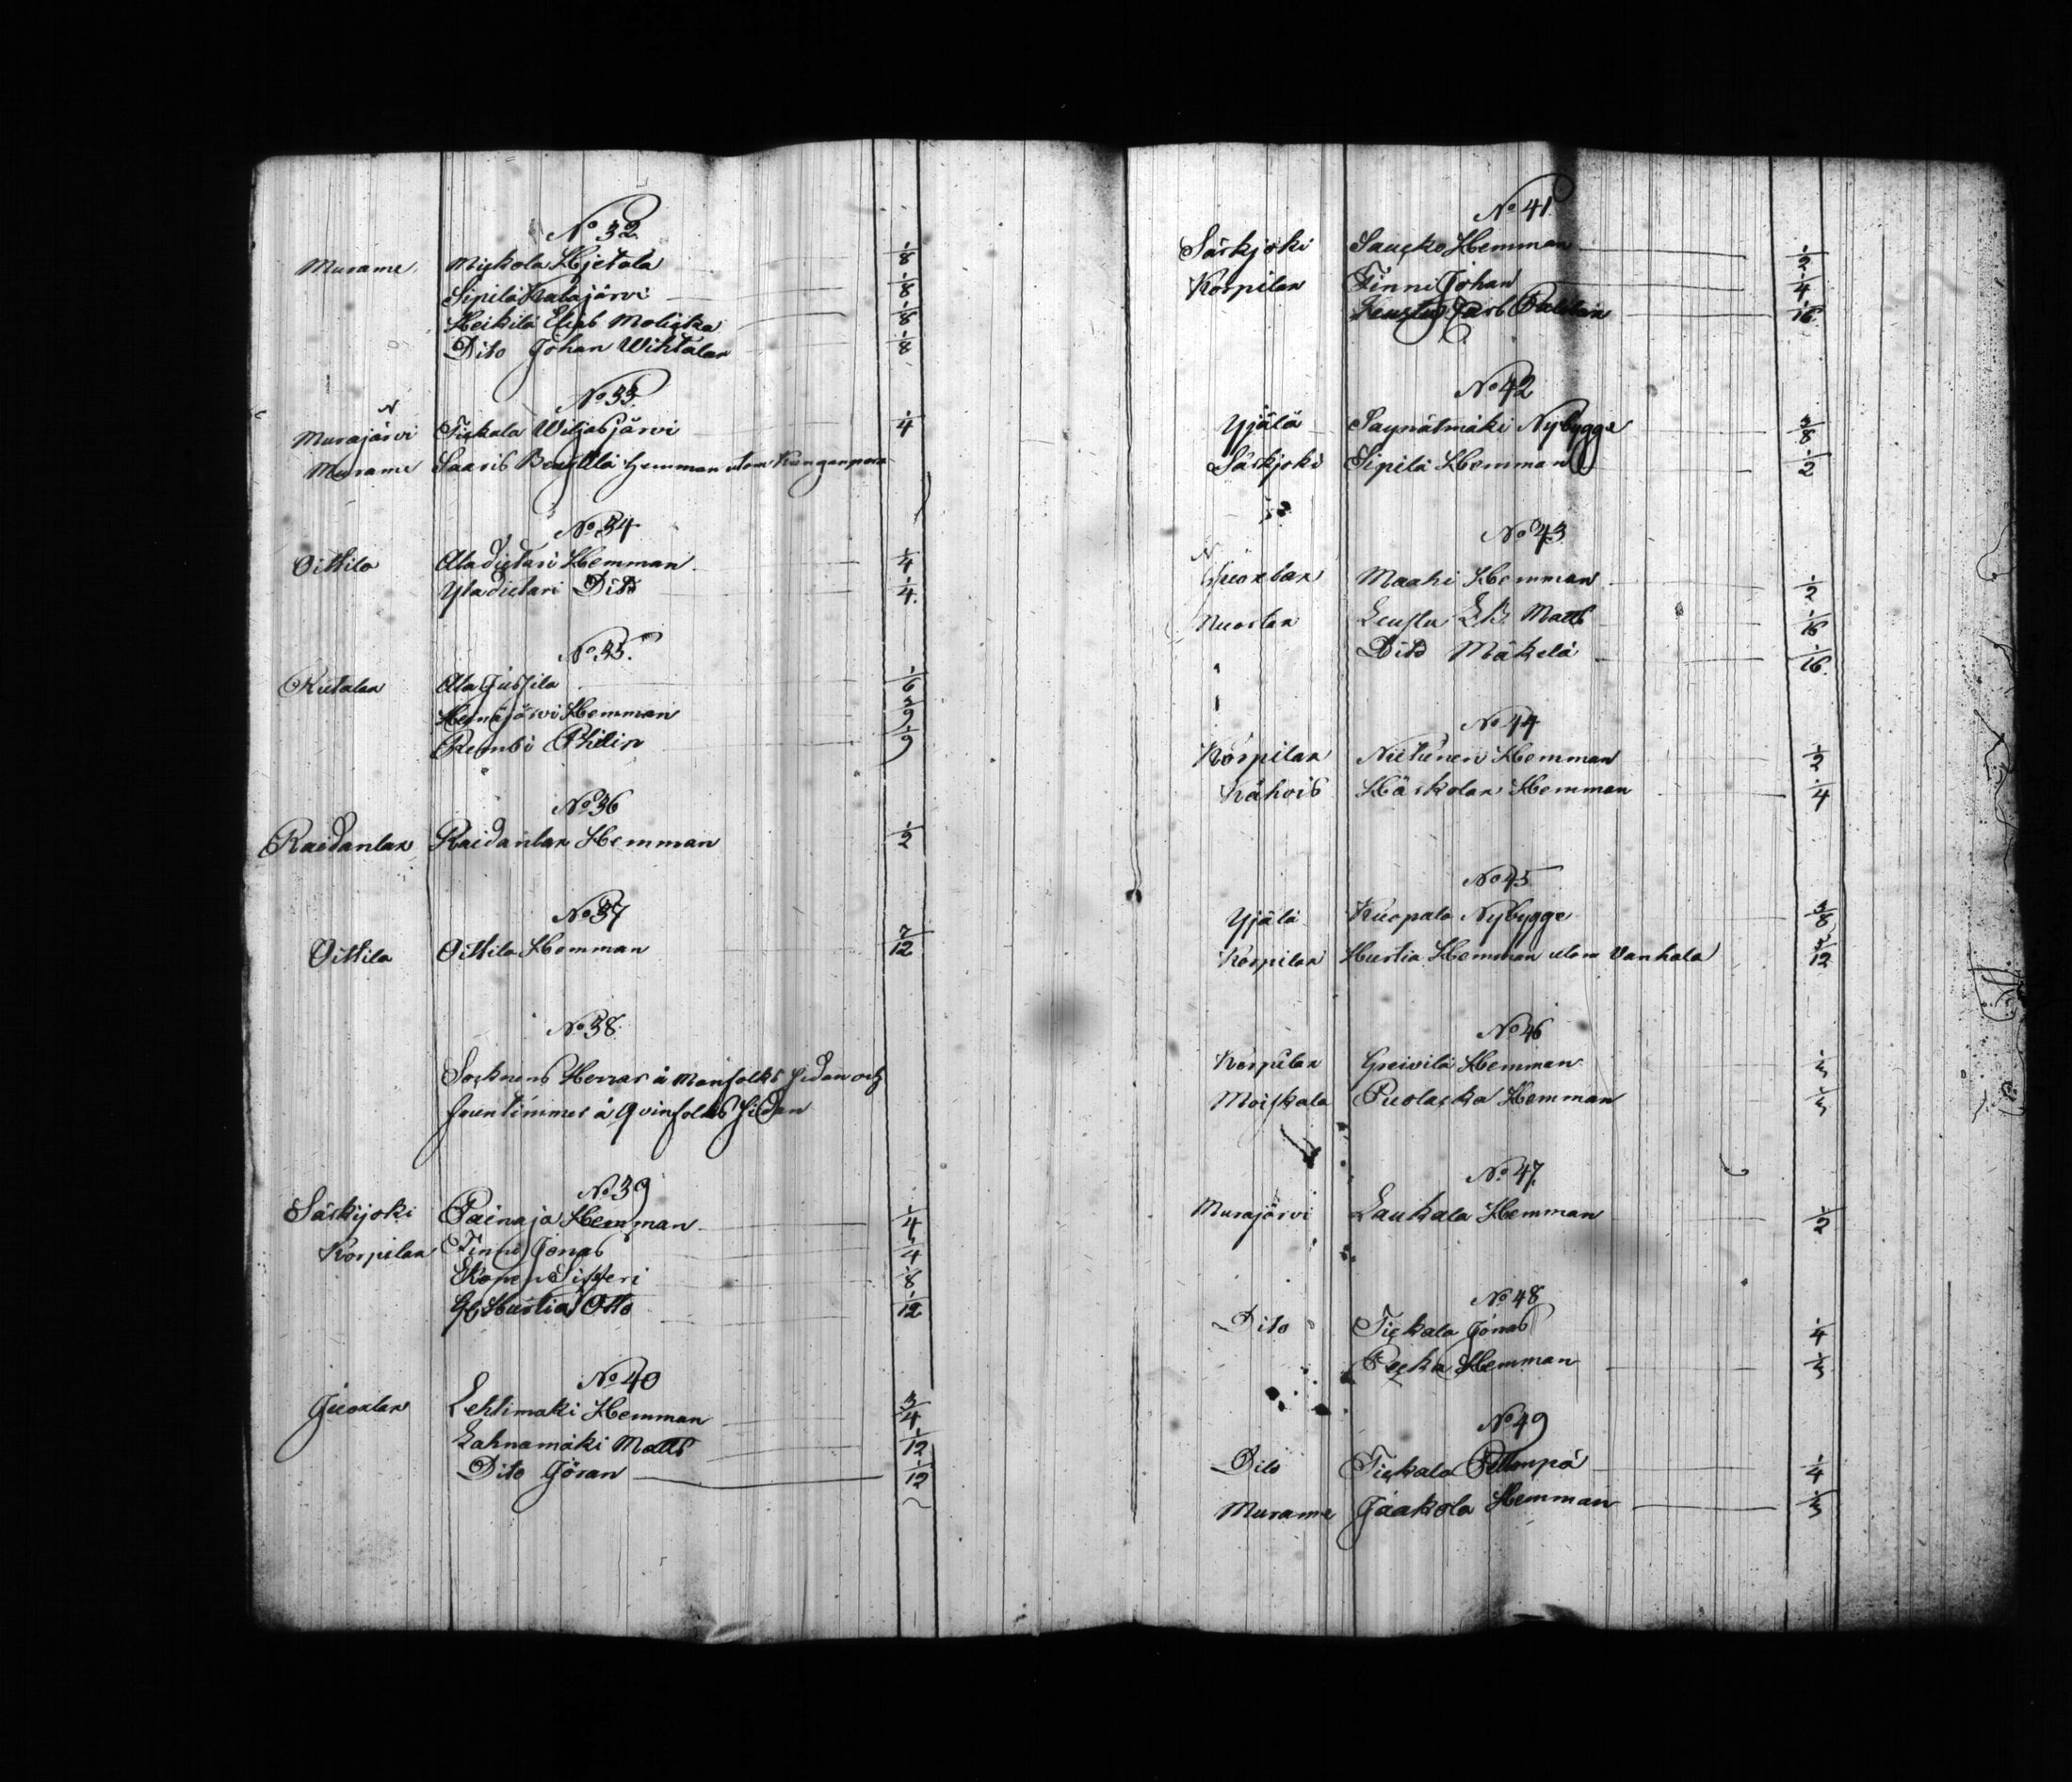 No 32
Murame Mickola Hjetala 1/8
Sipilä Kalajärvi 1/8
Heikilä Elias Molicka 1/8
Dito Johan Wihtalan 1/8
No 33
Murajärvi Tickala Wiljasjärvi 1/4
Murame Saaris Hemman utom Kanganpera
No 34
Oittila Aladietari Hemman 1/4
Yladietari Dito 1/4
No 35
Rutalan Ala Jussila 1/6
Heinäjärvi Hemman 2/9
Rembi Philin 1/9
No 36
Raidanlax Raidanlax Hemman 1/2
No 37
Oittila Oittila Hemman 7/12
No 38
Socknens Herrar å Manfolks sidan och
fruntimmer å Qvinfolks sidan
No 39
Särkijoki Painaja Hemman 1/4
Korpilax Tinni Jonas 1/4
Sisseri 1/8
Hurtia Otto 1/12
No 40
Juoxlax Lehtimäki Hemman 3/4
Lahnamäki Matts 1/12
Dito Göran 1/12
No 41
Särkjoki Saucko Hemman 1/2
Korpilax Tinni Johan 1/4
1/16
No 42
Yjälä Saynätmäki Nybygge 3/8
Särkjoki Sipilä Hemman 1/2
No 43
Maahi Hemman 1/2
Matts 1/16
Dito Mäkelä 1/16
No 44
Korpilax Nietunen Hemman 1/2
Kähois Härkolan Hemman 1/4
No 45
Yjälä Kuopala Nybygge 3/8
Korpilax Hurtia Hemman utom Vanhala 5/12
No 46
Korpilax Greivilä Hemman 1/3
Moiskala Puolacka Hemman 1/3
No 47
Murajärvi Laukala Hemman 1/2
No 48
Dito Tickala Jonas 1/4
Pecka Hemman 1/3
No 49
Dito Tickala 1/4
Murame Jaakola Hemman 1/3